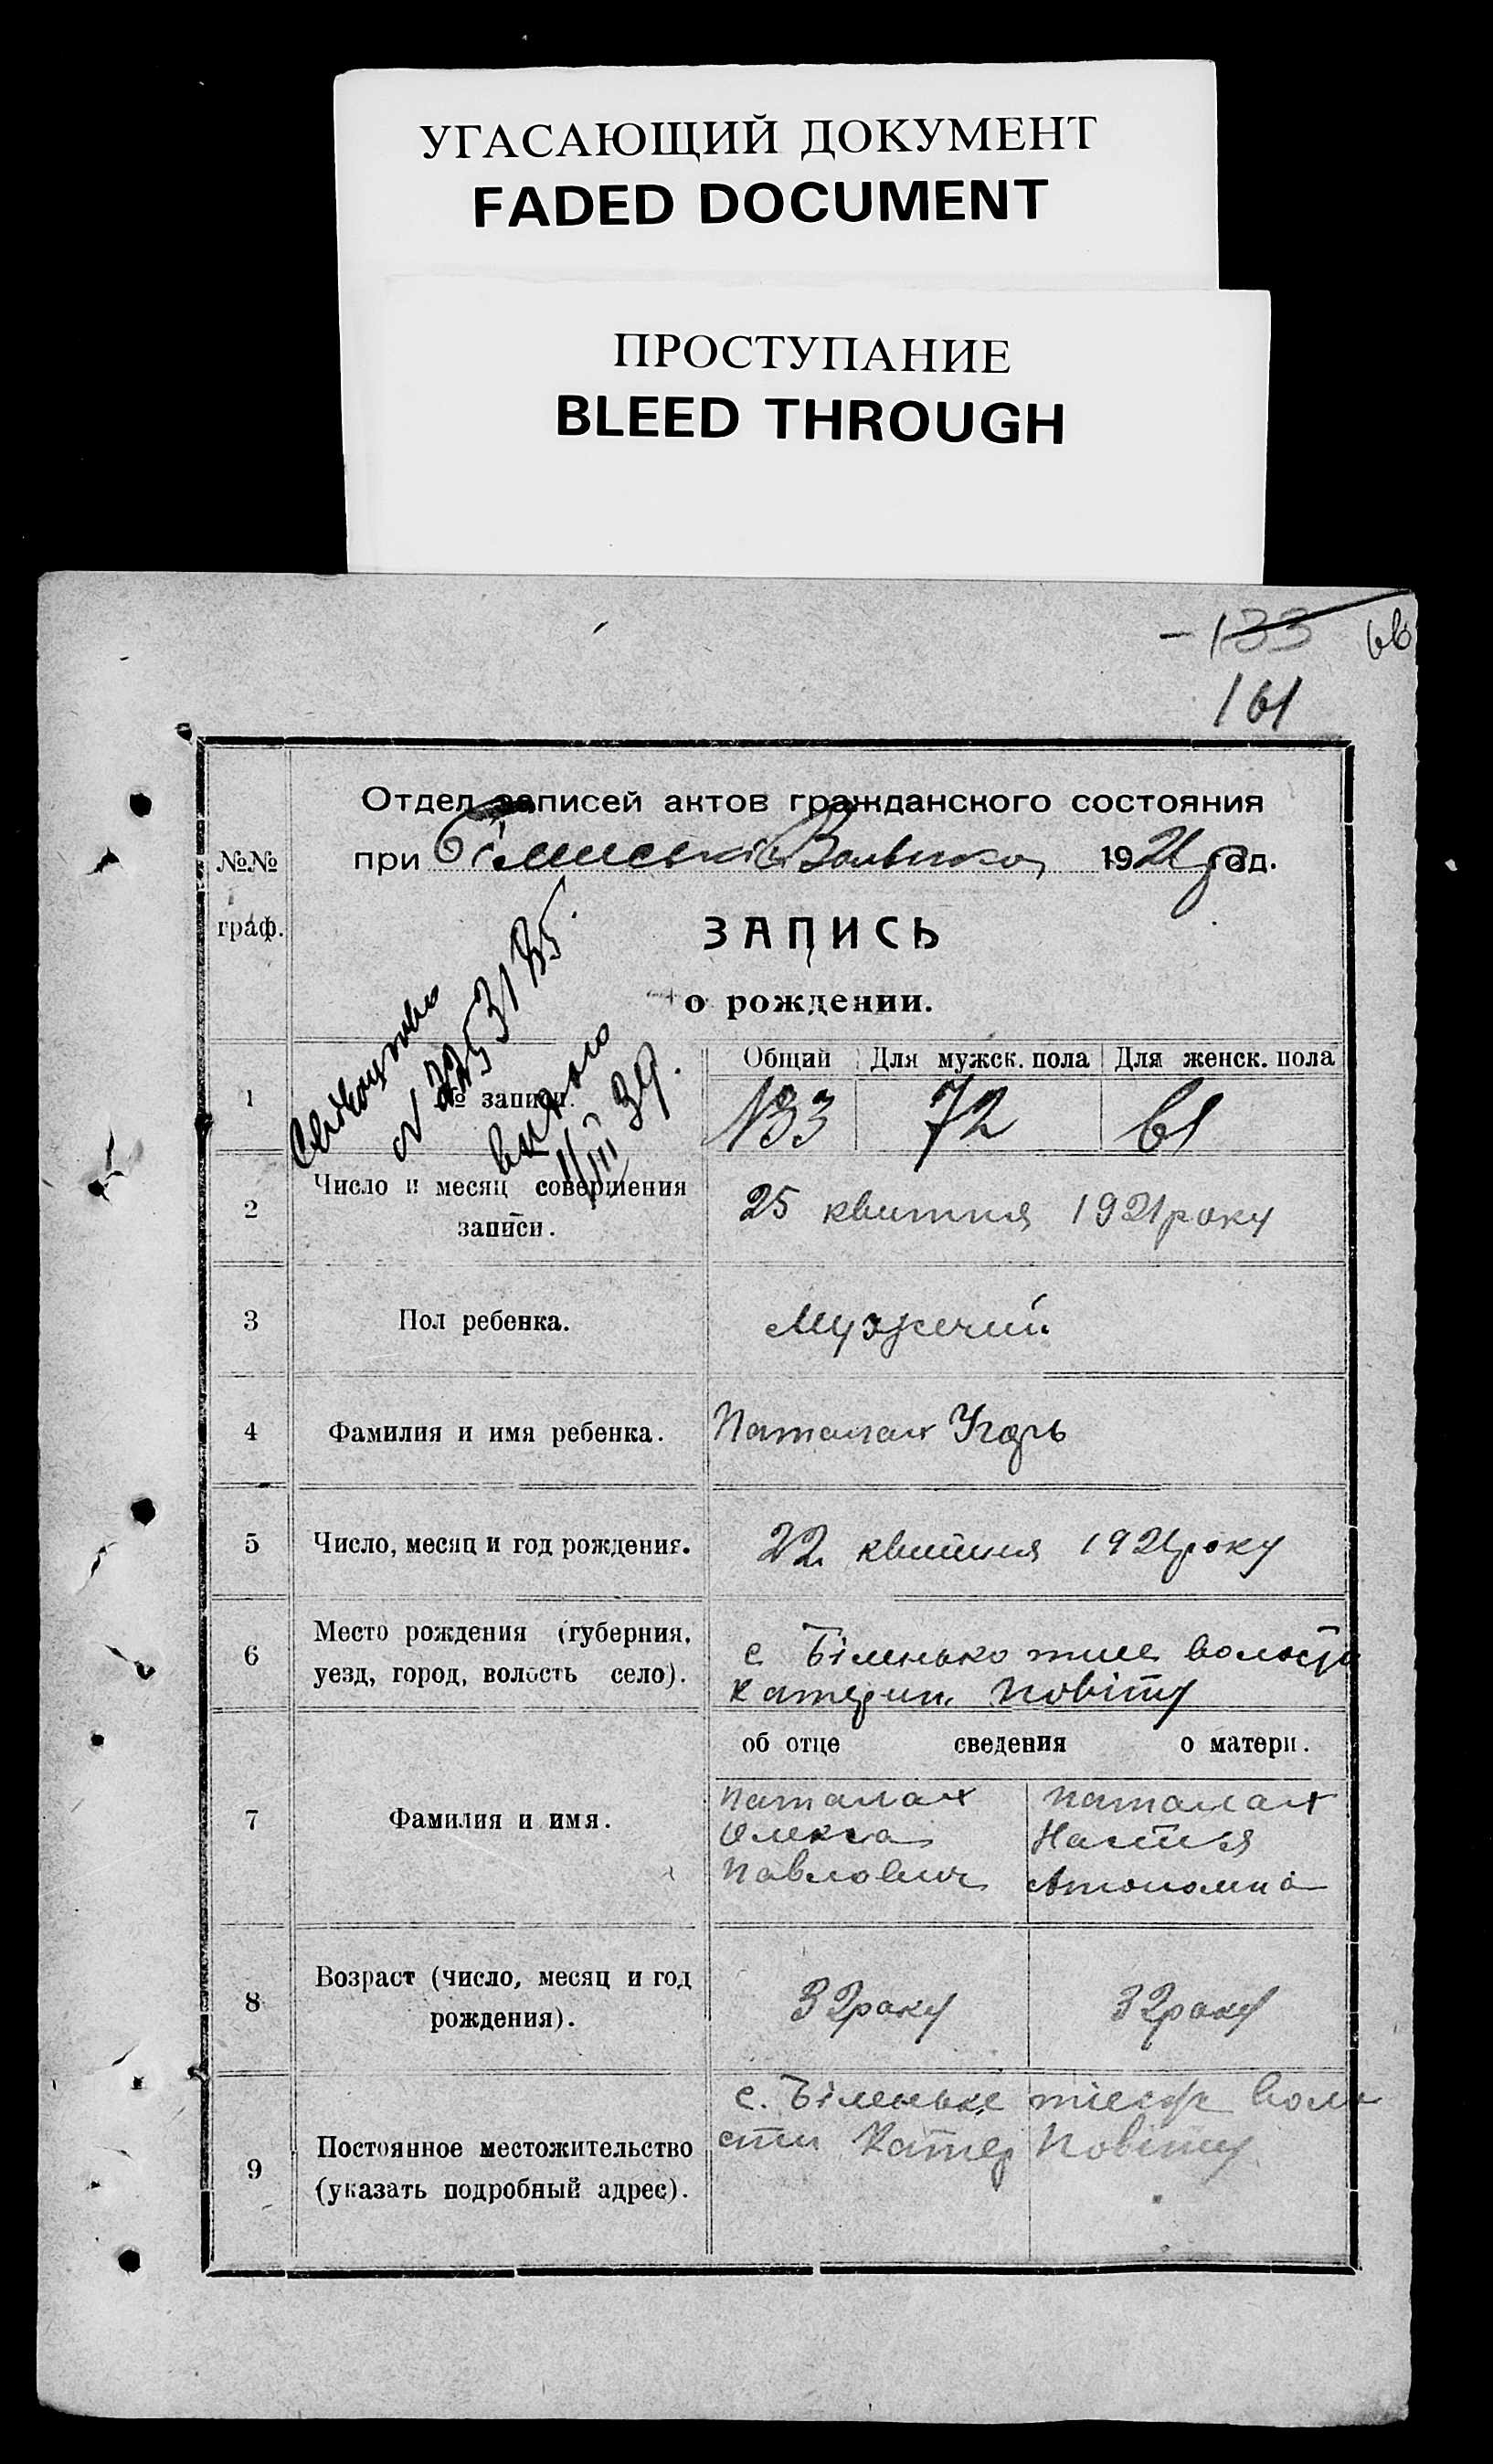 УГАСАЮЩИЙ ДОКУМЕНТ
FADED DOCUMENT
ПРОСТУПАНИЕ
BLEED THROUGH
133
161
Отдел записей актов гражданского состояния
при 1921 год.
№№
граф.
ЗАПИСЬ
о рождении.
Общий Для мужск. пола Для женск. пола
1 № записи. 133 72 61
2 Число и месяц совершения
записи.
25 квитня 1921 року
3 Пол ребенка. Мужечий
4 Фамилия и имя ребенка. Паталах Игорь
5 Число, месяц и год рождения. 22 квитня 1921 року
6 Место рождения (губерния,
уезд, город, волость село).
с. Біленько тиес волости
Катерин. Повіту
об отце сведения о матери.
7 Фамилия и имя.
Паталах Паталах
Олекса Настя
Павлович Антономна
8 Возраст (число, месяц и год
рождения).
32 року 32 року
9 Постоянное местожительство
(указать подробный адрес).
с. Біленьке воло
сти Катер Повіту